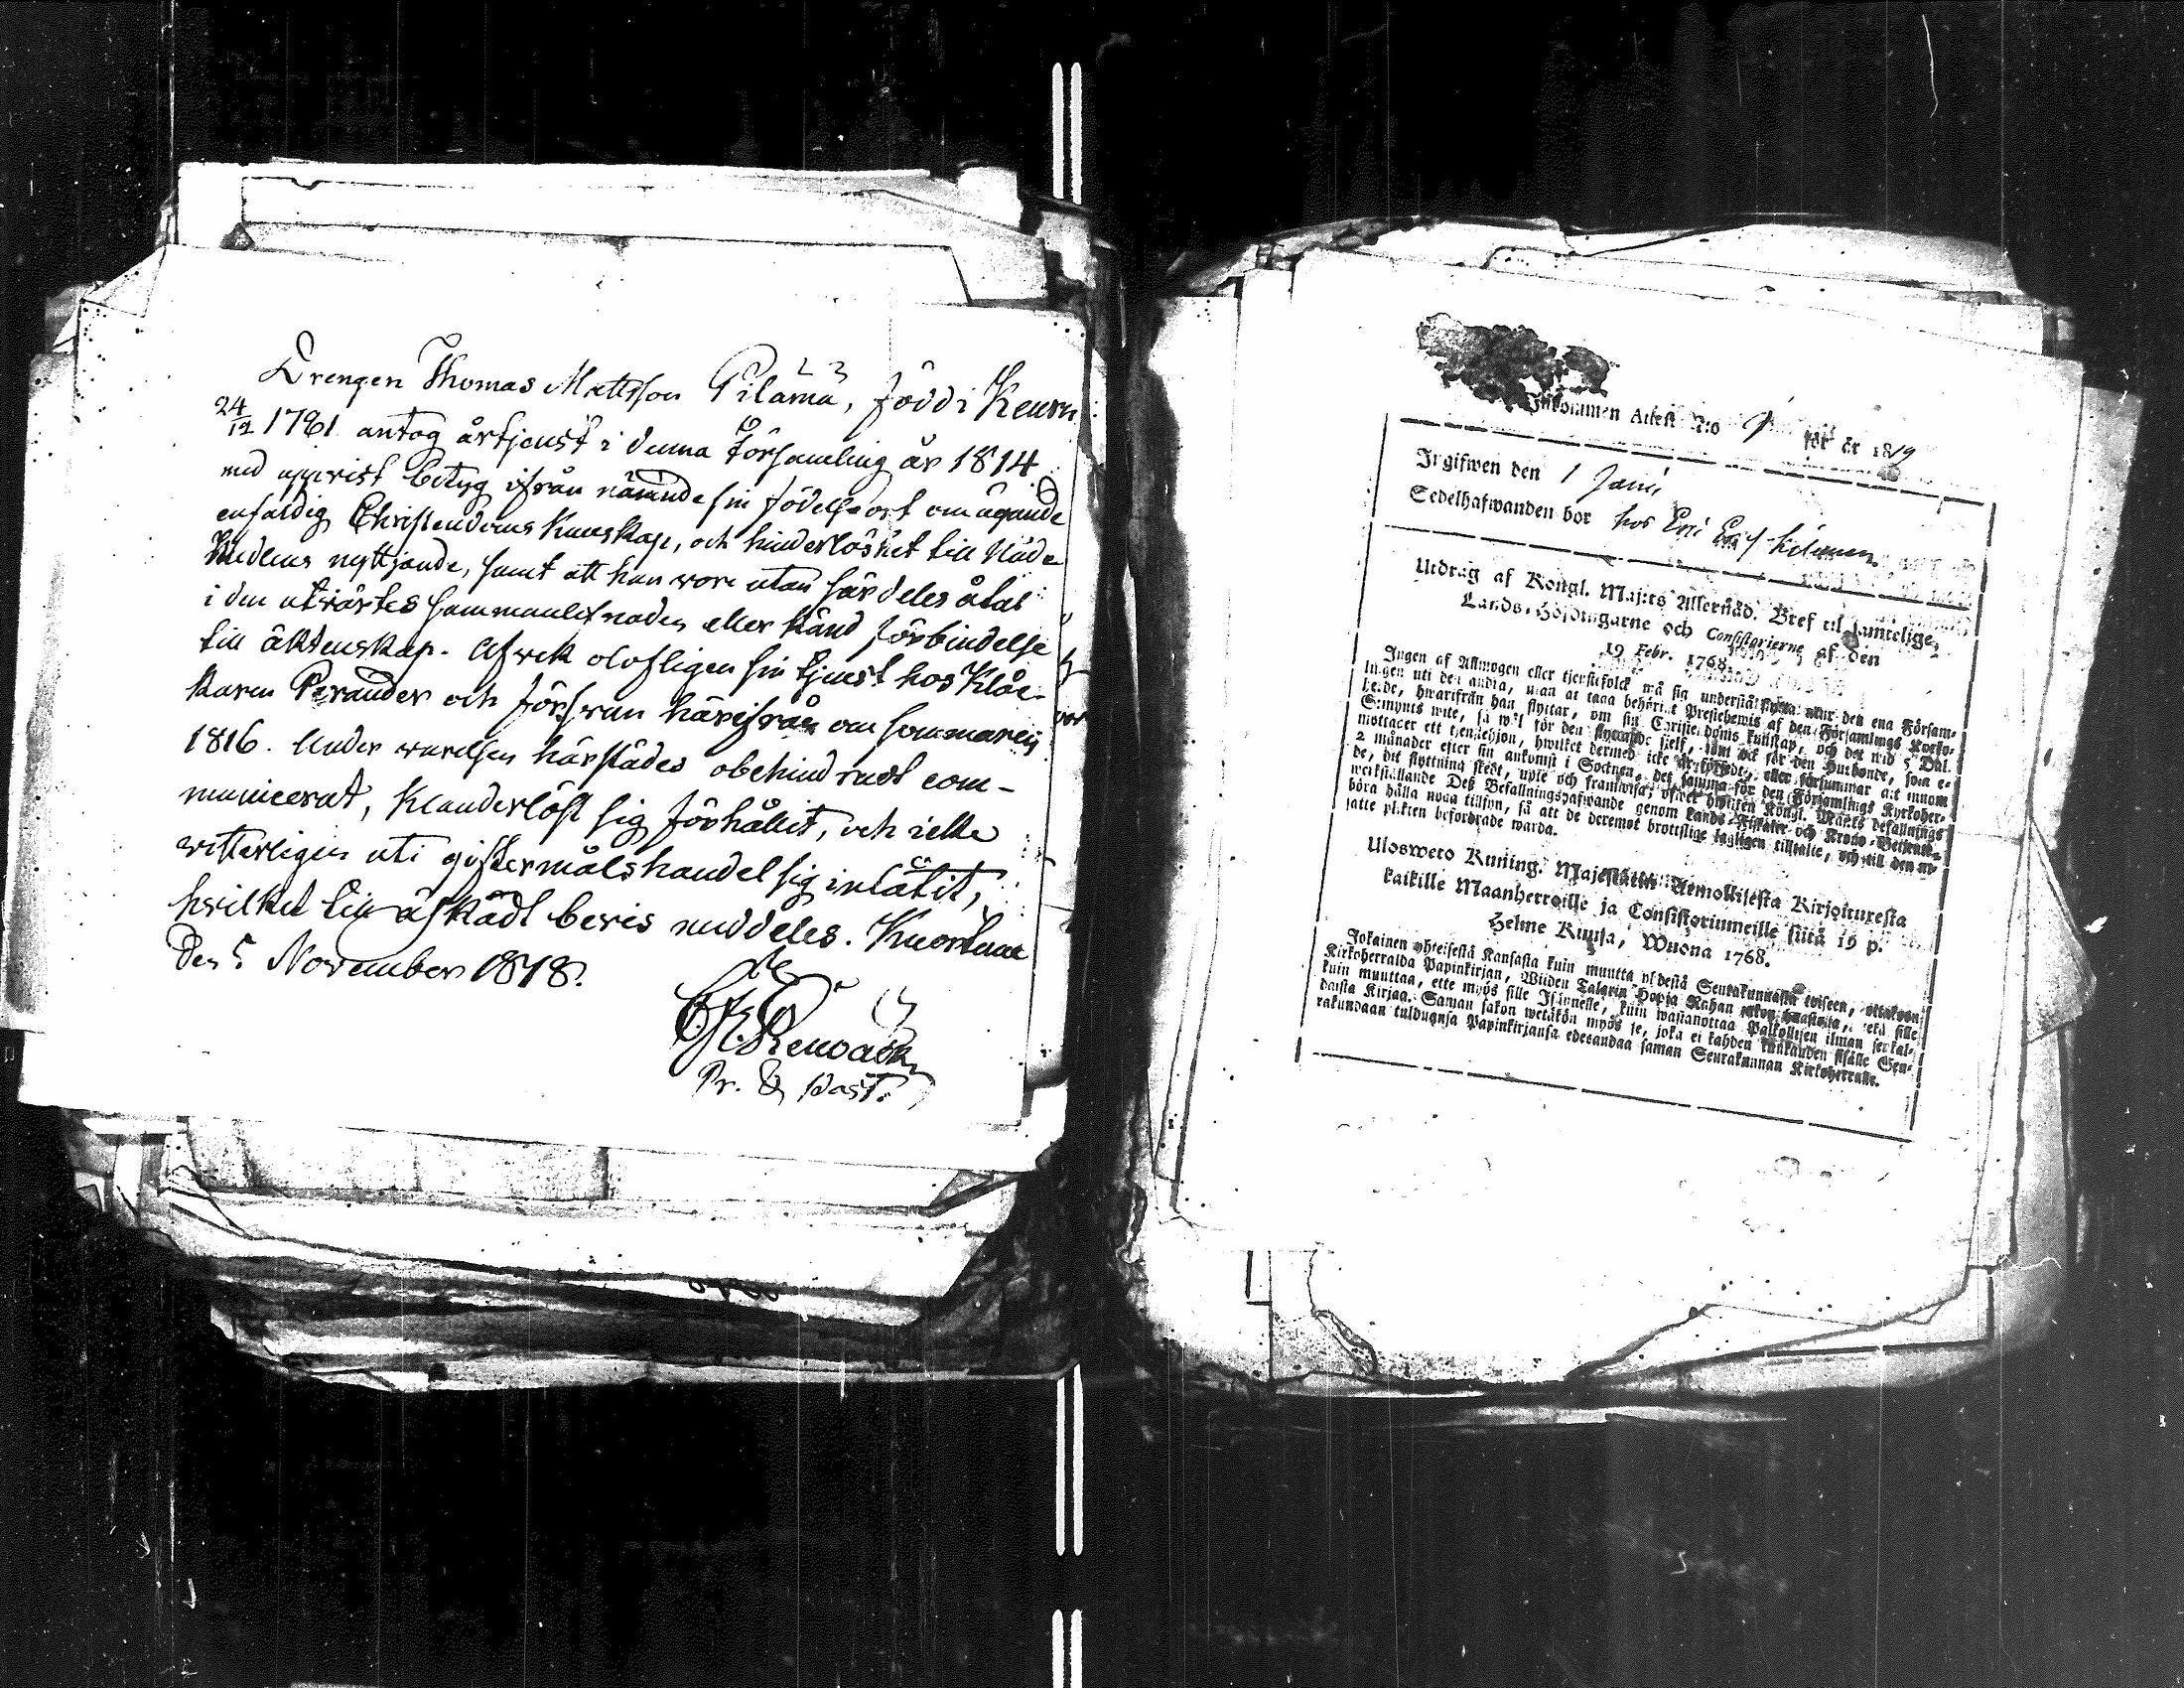 Drengen Thomas Mattsson Pilämä, född i Keuru
24/12 1781 antog årstjenst i denna Församling år 1814
med uppvist betyg ifrån nämnde sin födelseort om ägande
enfaldig Christendoms Kunskap, och hinderlöshet till Nåde
Medlens nyttjande, samt att han vore utan särdeles åtal
i den utvärtes sammanlefnaden eller känd förbindelse
till äktenskap. Afvek olofligen sin tjenst hos Kloc-
karen Perander och försvan härifrån om sommaren
1816. Under varelsen härstädes obehindradt com-
municerat, Klanderlöst sig förhållit, och icke
vitterligen uti giftermålshandel sig inlåtit,
hvilket till äskadt bevis meddeles. Kuortane
Den 5 November 1818.
Pr. & Past.
Inkommen Attest N:o 9 för år 1819
Utgifwen den 1 Junii
Sedelhafwanden bor hos
Utdrag af Kongl. Maj:ts Allernåd. Bref til samtelige
Lands-Höfdingarne och Consistorierne af den
19 Febr. 1768.
Ingen af Allmogen eller tjenstefolck må sig understå flytta utur den ena Försam-
lingen uti den andra, utan at taga behörigt Prestebewis af den Församlings Kyrko-
herde, hwarifrån han flyttar, om sin Christendoms kunskap, och det wid 5 Dal.
S:mynts wite, så wäl för den flyttande sjelf, som ock för den Husbonde, som e-
mottager ett tjenstehjon, hwilket dermed icke är försedt, eller försummar att innom
2 månader efter sin ankomst i Socknen, det samma för den Församlings Kyrkoher-
de, dit flyttning skedt, upte och framwisa; öfwer hwilket Kongl. Maj:ts Befallnings
werkställande Deß Befallningshafwande genom Lands-Fiskaler och Krono-Betjente
böra hålla noga tillsyn, så att de deremot brottslige lagligen tilltalte, och till den ut-
satte plikten befordrade warda.
Ulosweto Kuning. Majestätin Armollisesta Kirjoituxesta
kaikille Maanherroille ja Consistoriumeille siitä 19 p.
Helme Kuusa, Wuona 1768.
Jokainen yhteisestä Kansasta kuin muutta yhdestä Seurakunnasta toiseen, ottakoon
Kirkoherralda Papinkirjan, Wiiden Talarin Hopia Rahan sakon haastolla, sekä sille
kuin muuttaa, ette myös sille Isännelle, kuin wastanottaa Palkollisen ilman senkal-
daista Kirjaa. Saman sakon wetäkön myös se, joka ei kahden kuukauden sisälle Seu-
rakundaan tulduansa Papinkirjansa edesandaa saman Seurakunnan Kirkoherralle.